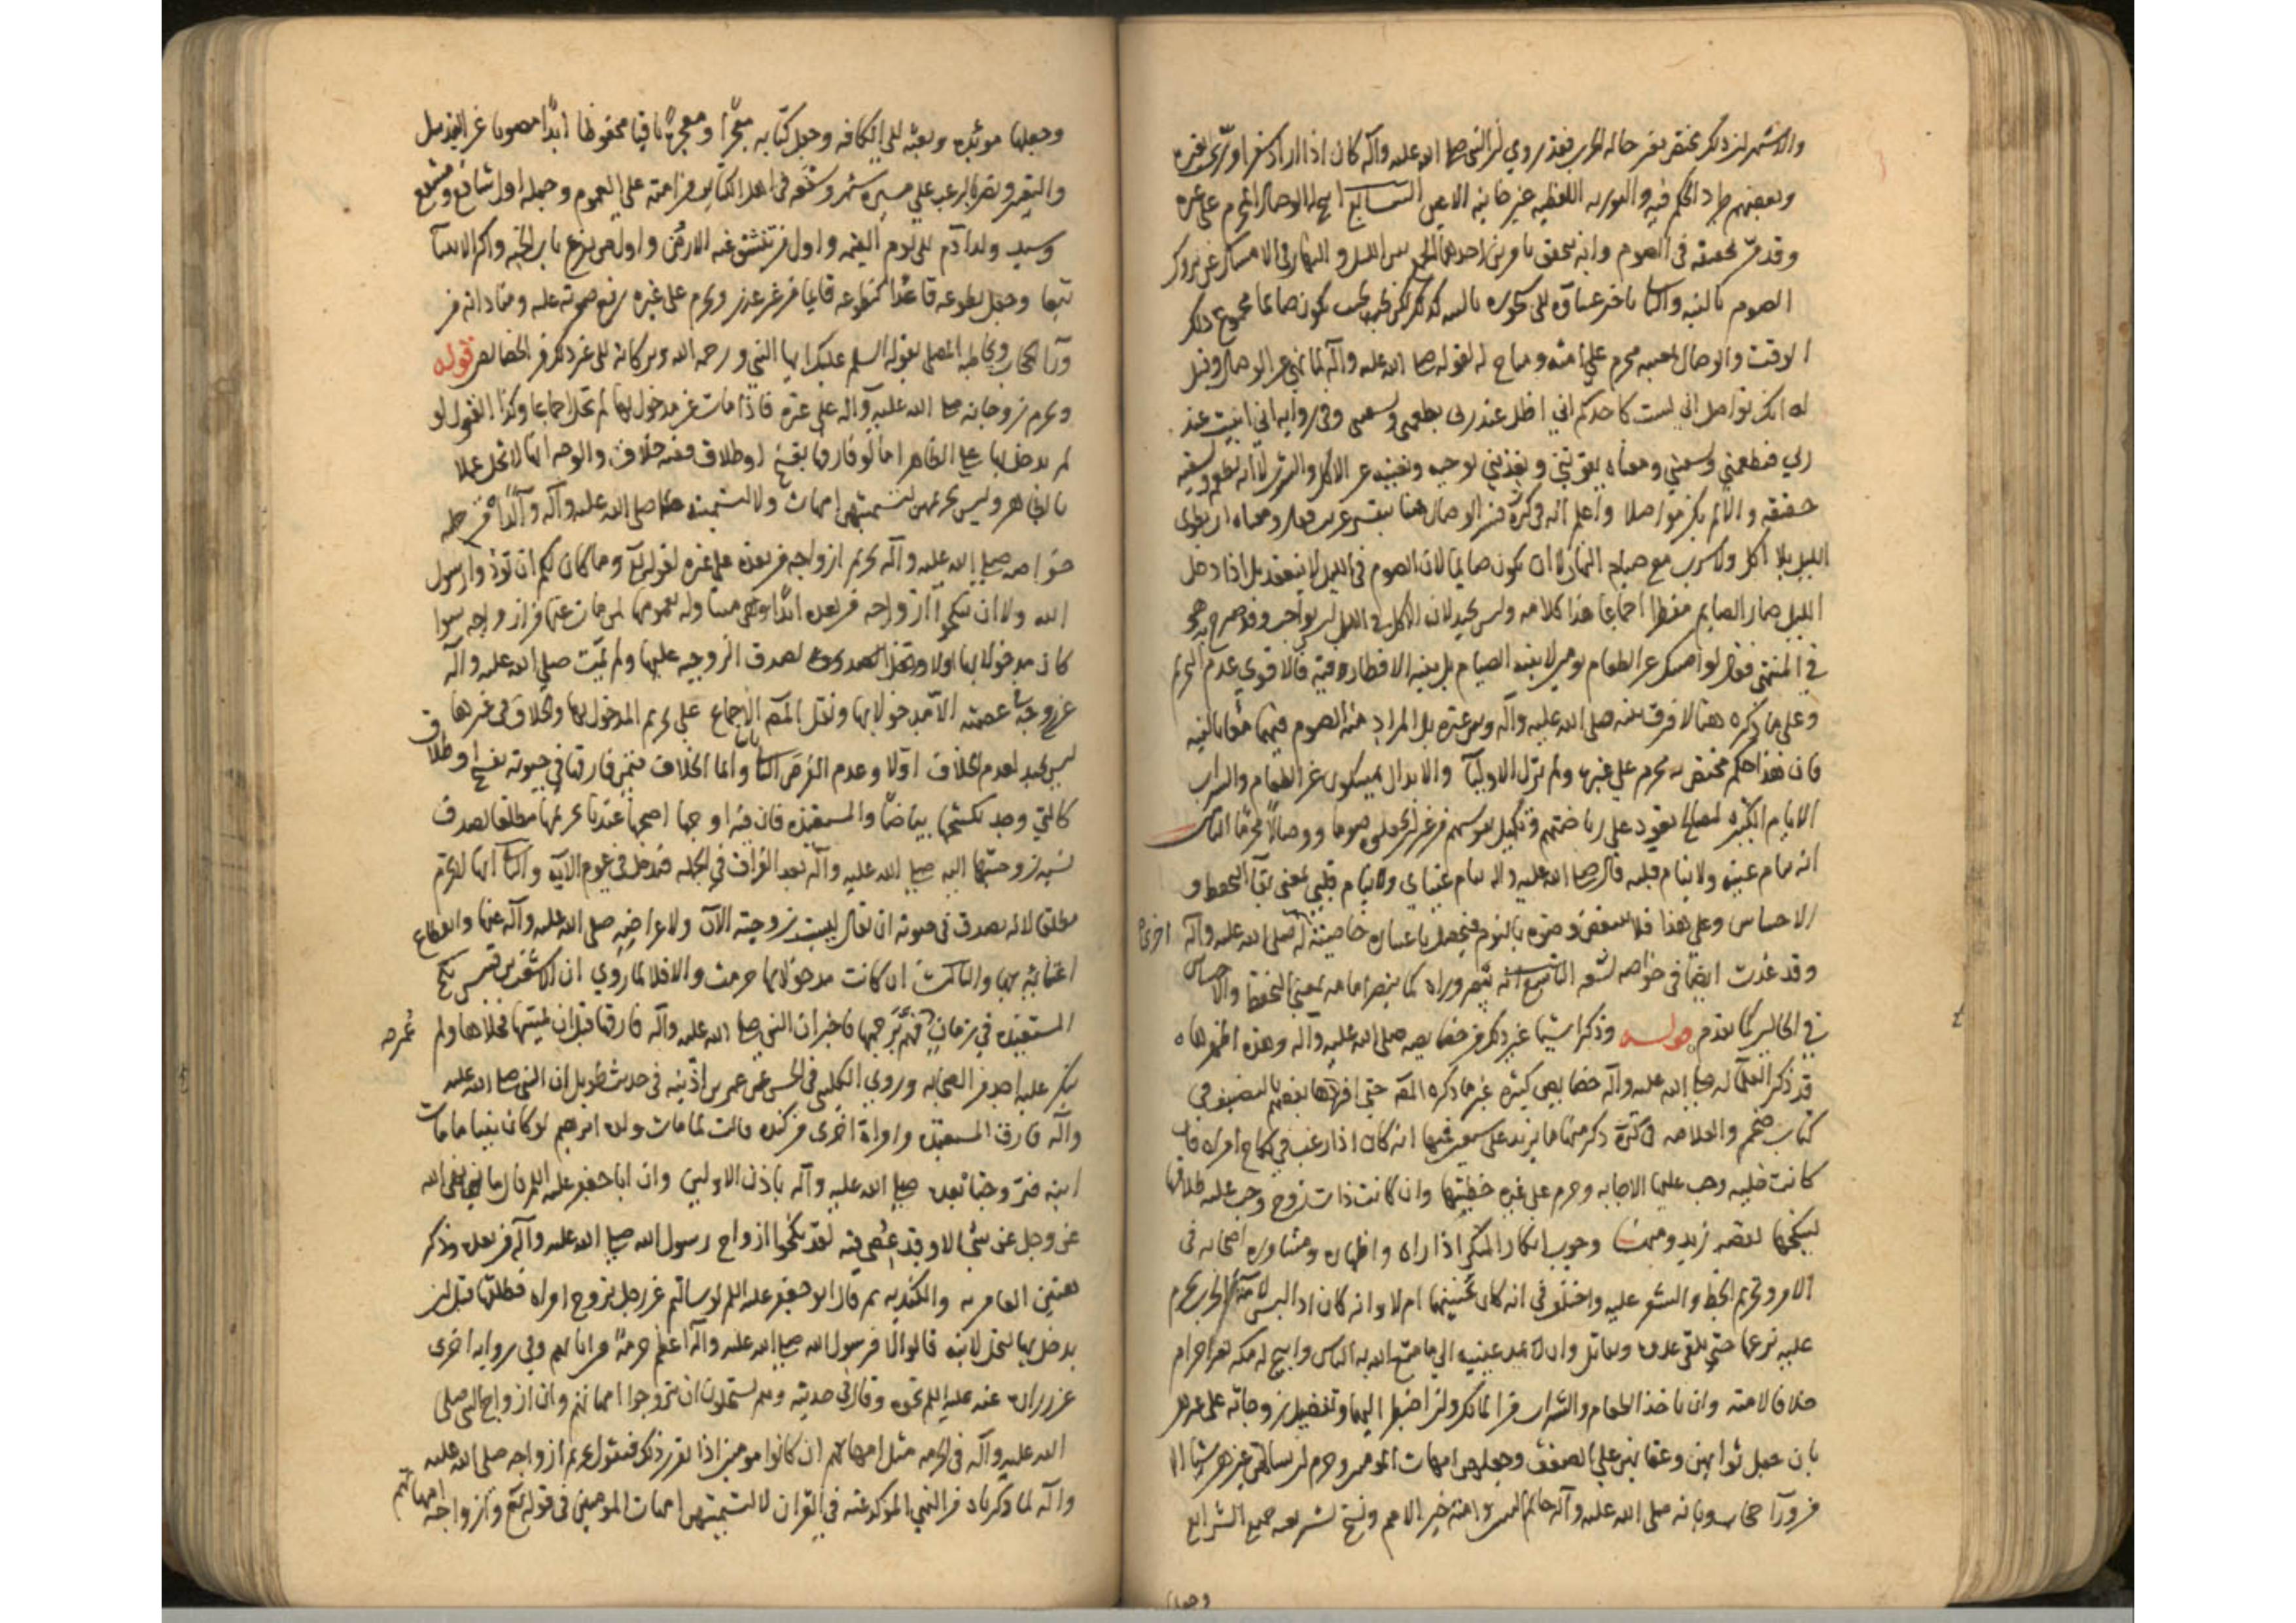 والاشهر ان ذلك مختص بغير حالة الحرب فقد روي ان النبي صلى الله عليه وآله كان اذا اراد سفرا ورّى بغيره
وبعضهم طرد الحكم فيه والتورية اللفظية غير خائنة الاعين السابع ابيح له الوصال المحرم على غيره
وقد مرّ تحقيقه في الصوم وانه يتحقق بامرين احدهما الجمع بين الليل والنهار في الامساك عن تروك
الصوم بالنية والثاني تاخير عشاؤه الى سحوره بالنية كذلك بحيث يكون صائما مجموع ذلك
الوقت والوصال بمعنييه محرم على امته ومباح له لقوله صلى الله عليه وآله لما نهى عن الوصال وقيل
له انك تواصل اني لست كاحدكم اني اظل عند ربي يطعمني ويسقيني وفي رواية اني ابيت عند
ربي فيطعمني ويسقيني ومعناه يقوتني ويغذيني بوحيه ويغنيني عن الاكل والشرب لا انه يطعم ويسقيه
حقيقة والا لم يكن مواصلا واعلم انه في كرّة فسر الوصال هنا بتفسير غريب فقال ومعناه ان يطوي
الليل بلا اكل ولا شرب مع صيام النهار لا ان يكون صايما لان الصوم في الليل لا ينعقد بل اذا دخل
الليل صار الصايم مفطرا اجماعا هذا كلامه وليس بجيد لان الاكل في الليل ليس بواجب وقد صرح به هو
في المنتهى فقال لو امسك عن الطعام يومين لا بنية الصيام بل بنية الافطار فالاقوى عدم التحريم
وعلى ما ذكره هنا لا فرق بينه صلى الله عليه وآله وبين غيره بل المراد منه الصوم فيهما معا بالنية
فان هذا حكم مختص به محرم على غيره ولم تزل الاوليا والابدال يمسكون عن الطعام والشراب
الايام الكثيرة لمصالح تعود على رياضتهم وتكميل نفوسهم من غير ان يجعلوه صوما ووصالا محرما الثامن
انه تنام عينه ولا ينام قلبه قال صلى الله عليه وآله تنام عيناي ولا ينام قلبي بمعنى بقاء التحفظ و
الاحساس وعلى هذا فلا ينتقض وضوه بالنوم فيحصل باعتباره خاصيّة له صلى الله عليه وآله اخرى
وقد عُدّت ايضا في خواصه لتسعة التاسع انه يبصر وراه كما يبصر امامه بمعنى التحفظ والاحساس
في الحالين كما تقدم قوله وذكر اشيا غير ذلك من خصايصه صلى الله عليه وآله وهذه اظهرها
قد ذكر العلماء له صلى الله عليه وآله خصايص كثيرة غير ما ذكره المصه حتى افردها بعضهم بالتصنيف في
كتاب ضخم والعلامة في كرّة ذكر منها ما يزيد على سبعين فمنها انه كان اذا رغب في نكاح امراة فان
كانت خلية وجب عليها الاجابة وحرم على غيره خطبتها وان كانت ذات زوج وجب عليه طلاقها
لينكحها لقصة زيد ومنها وجوب انكار المنكر اذا راه واظهاره ومشاورة اصحابه في
الامر وتحريم الخط والشعر عليه واختلف في انه كان يحسنهما ام لا وانه كان اذا لبس لامة الحرب يحرم
عليه نزعها حتى يلقى عدوه ويقاتل وان لا يمد عينيه الى ما متع الله به الناس وابيح له مكة بغير احرام
خلافا لامته وان ياخذ الطعام والشراب من المالك وان اضطر اليهما وتفضيل زوجاته على غيرهن
بان جعل ثوابهن وعقابهن على الضعف وجعلهن امهات المومنين وحرم ان يسالهن غيرهن شيئا الا
من ورآ حجاب وبانه صلى الله عليه وآله خاتم النبيين وامته خير الامم ونسخ لشريعته جميع الشرايع
وجعلها
وجعلها موبّدة وبعثه الى الكافة وجعل كتابه معجزا ومعجزة باقيا محفوظا ابدا مصونا عن التبديل
والتغيير ونصره بالرعب على مسيرة شهر وشفعه في اهل الكباير من امته على العموم وجعله اول شافع ومشفّع
وسيد ولد ادم الى يوم القيمة واول من تنشق عنه الارض واول من يقرع باب الجنة واكثر الانبيآ
تبعا وجعل تطوعه قاعدا كتطوعه قايما من غير عذر ويحرم على غيره رفع صوته عليه ومناداته من
ورآ الحجاب ويخاطبه المصلي بقوله السلم عليك ايها النبي ورحمة الله وبركاته الى غير ذلك من الخصايص قوله
وتحرم زوجاته صلى الله عليه وآله على غيره فاذا مات عن مدخول بها لم تحل اجماعا وكذا القول لو
لم يدخل بها على الظاهر اما لو فارقها بفسخ او طلاق ففيه خلاف والوجه انها لا تحل عملا
بالظاهر وليس تحريمهن لتسميتهن امهات ولا لتسميته صلى الله عليه وآله والدا من جملة
خواصه صلى الله عليه وآله تحريم ازواجه من بعده على غيره لقوله تعالى وما كان لكم ان تؤذوا رسول
الله ولا ان تنكحوا ازواجه من بعده ابدا وهي متناولة بعمومها لمن مات عنها من ازواجه سوا
كان مدخولا بها ام لا لصدق الزوجية عليها ولم يمت صلى الله عليه وآله
عن زوجة في عصمته الا مدخولا بها ونقل المصه الاجماع على تحريم المدخول بها والخلاف في غيرها
ليس بجيد لعدم الخلاف اولا وعدم الفرض ثانيا وانما الخلاف فيمن فارقها في حيوته بفسخ او طلاق
كالتي وجد بكشحها بياضا والمستعيذة فان فيه اوجها اصحها عندنا تحريمها مطلقا لصدق
نسبة زوجيتها اليه صلى الله عليه وآله بعد الفراق في الجملة فتدخل في عموم الآية والثاني انها لا تحرم
مطلقا لانه يصدق في حيوته ان يقال ليست زوجته الآن ولاعراضه صلى الله عليه وآله عنها وانقطاع
اعتنائه بها والثالث ان كانت مدخولا بها حرمت والا فلا لما روي ان الاشعث بن قيس نكح
المستعيذة في زمان عمر فهمّ برجمها فاخبر ان النبي صلى الله عليه وآله فارقها قبل ان يمسّها فخلاها ولم
ينكر عليه احد من الصحابة وروى الكليني في الحسن عن عمر بن اذينة في حديث طويل ان النبي صلى الله عليه
وآله فارق المستعيذة وامراة اخرى من كندة قالت لما مات ولده ابرهيم لو كان نبيا ما مات
ابنه فتزوجتا بعده صلى الله عليه وآله باذن الاولين وان ابا جعفر عليه السلم قال ما نهى الله
عز وجل عن شي الا وقد عُصي فيه لقد نكحوا ازواج رسول الله صلى الله عليه وآله من بعده وذكر
هتين العامرية والكندية ثم قال ابو جعفر عليه السلم لو سالتم عن رجل تزوج امراة فطلقها قبل ان
يدخل بها اتحل لابنه قالوا لا فرسول الله صلى الله عليه وآله اعظم حرمة من ابائهم وفي رواية اخرى
عن زرارة عنه عليه السلم نحوه وقال في حديثه وهم يستحلون ان يتزوجوا امهاتهم وان ازواج النبي صلى
الله عليه وآله في الحرمة مثل امهاتهم ان كانوا مومنين اذا تقرر ذلك فنقول تحريم ازواجه صلى الله عليه
وآله لما ذكرناه من النهي الموكد عنه في القران لا لتسميتهن امهات المومنين في قوله تعالى وازواجه امهاتهم